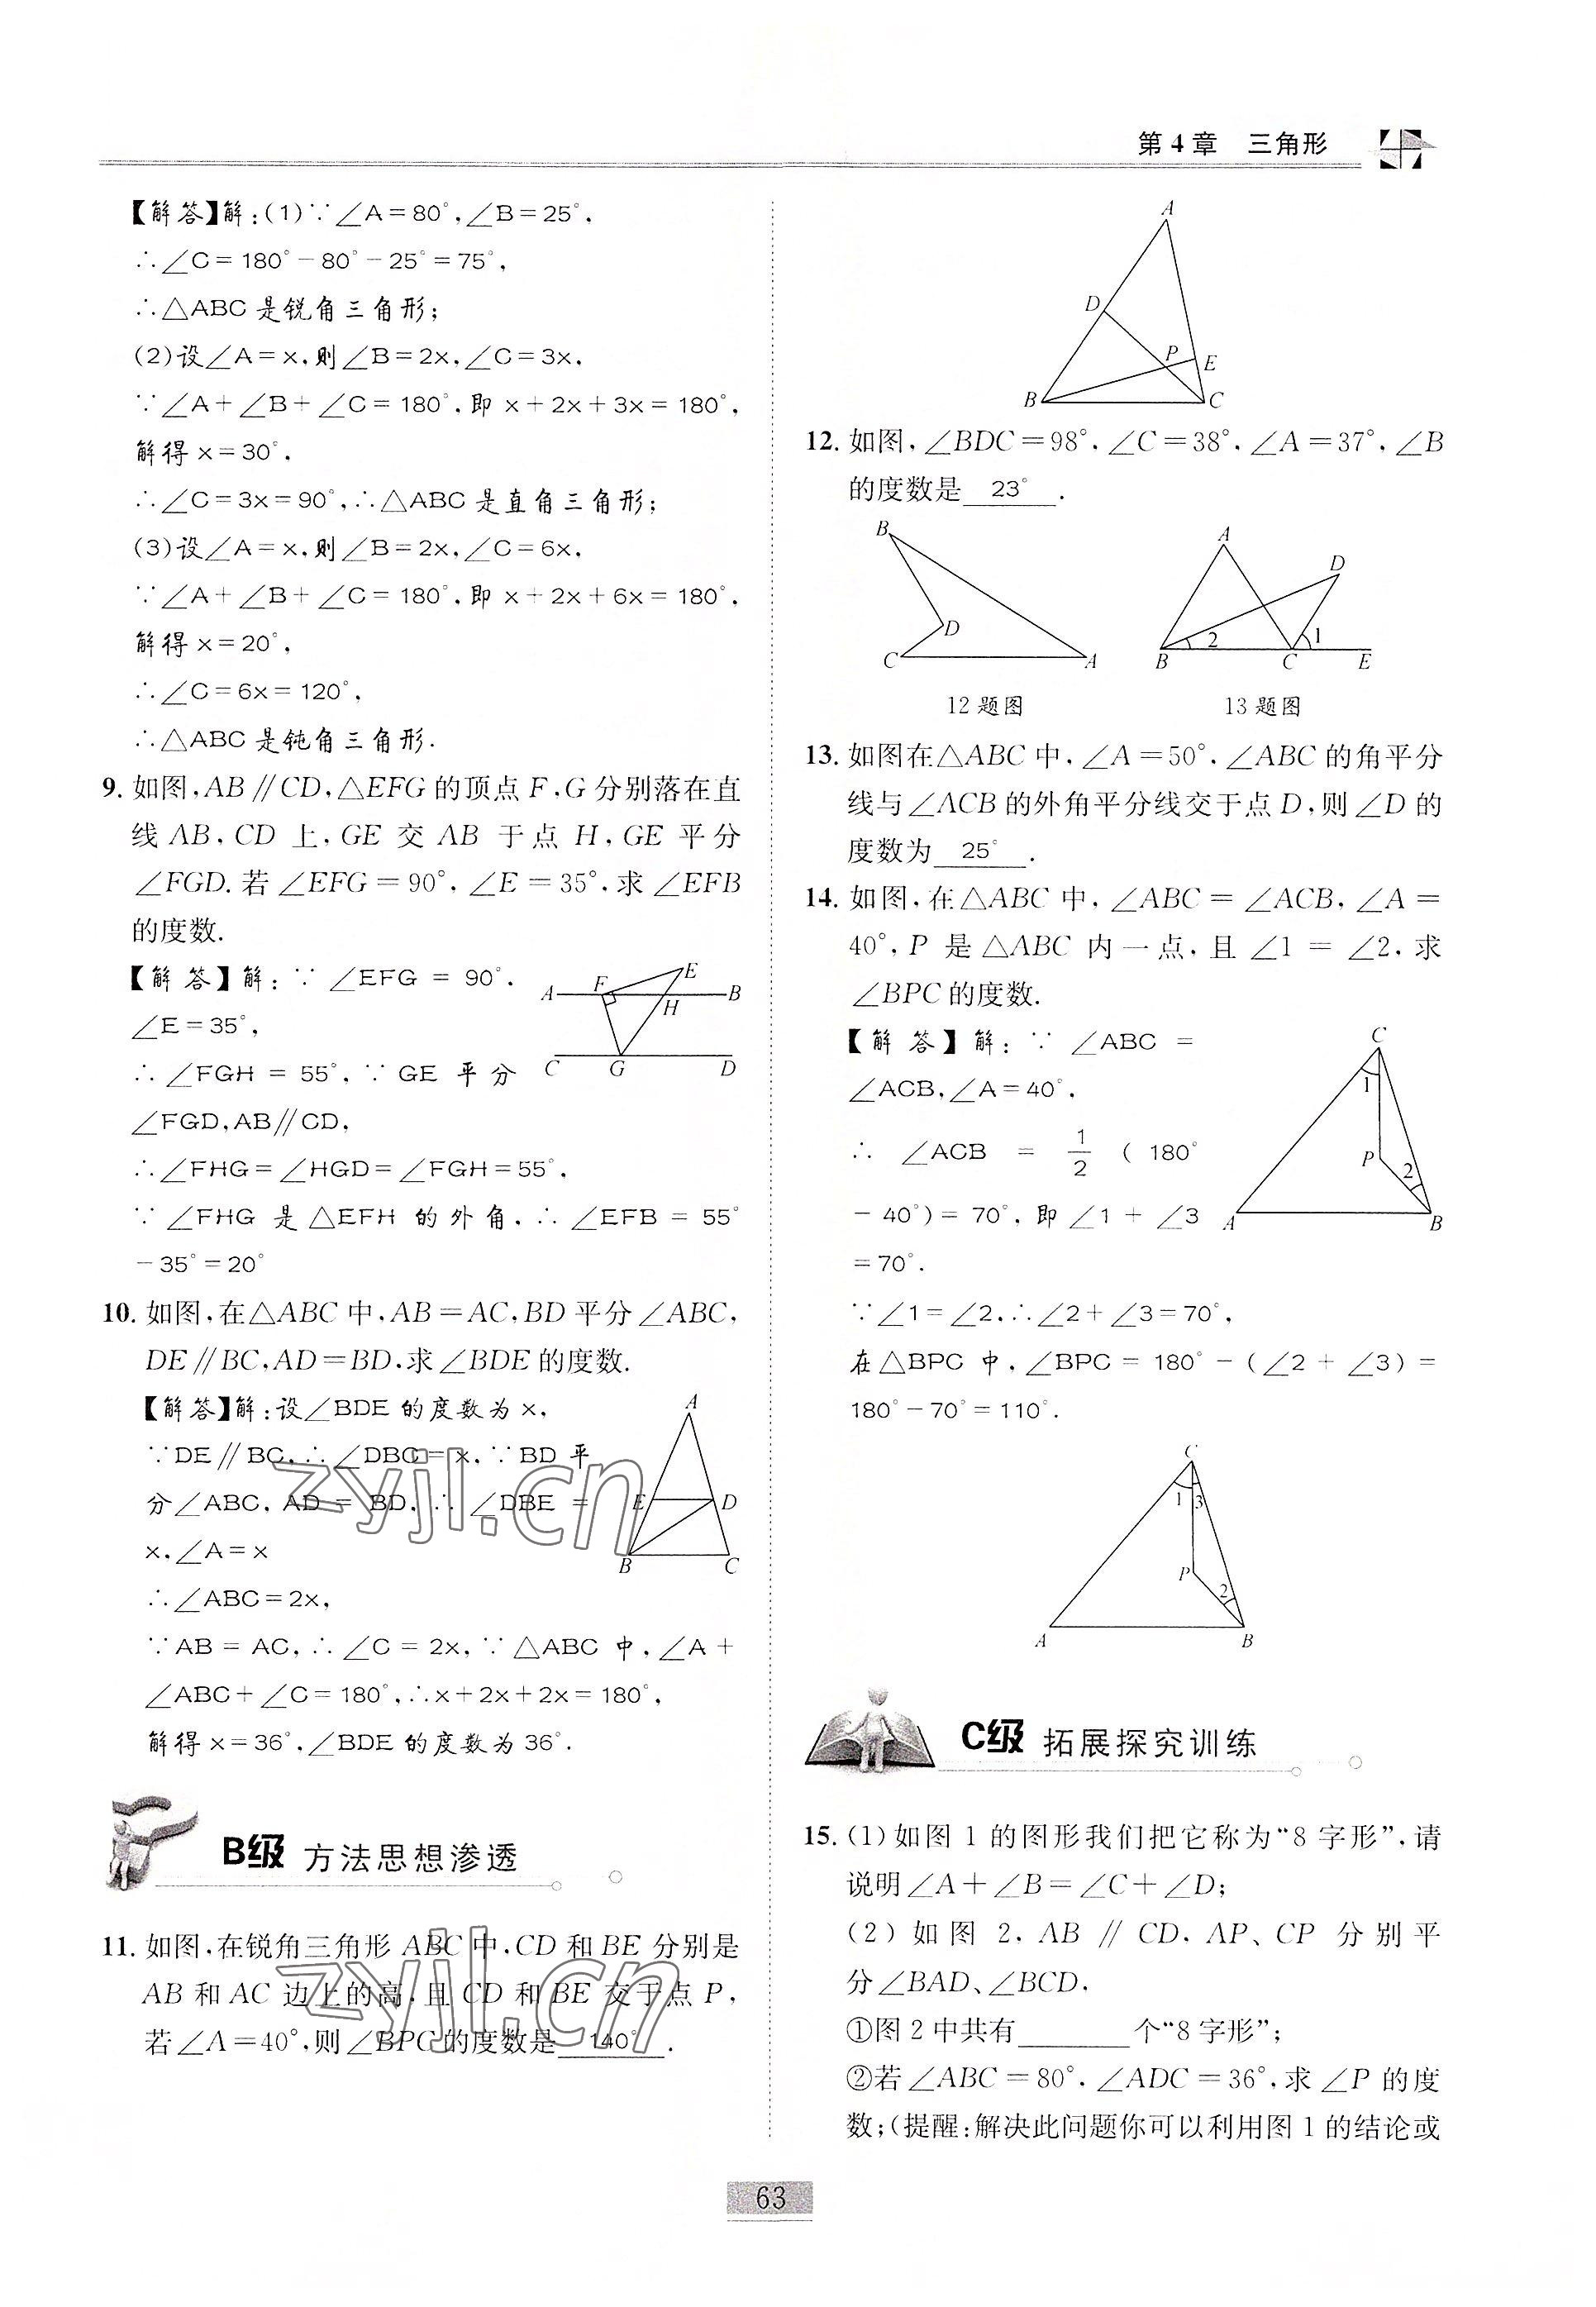 第4章 三角形
【解答】解:(1)∵∠A=80°,∠B=25°,
∴∠C=180°-80°-25°=75°,
∴△ABC是锐角三角形;
(2)设∠A=x,则∠B=2x,∠C=3x,
∵∠A+∠B+∠C=180°,即x+2x+3x=180°,
解得x=30°,
∴∠C=3x=90°,∴△ABC是直角三角形;
(3)设∠A=x,则∠B=2x,∠C=6x,
∵∠A+∠B+∠C=180°,即x+2x+6x=180°,
解得x=20°,
∴∠C=6x=120°,
∴△ABC是钝角三角形.
9. 如图,AB∥CD,△EFG的顶点F,G分别落在直
线AB,CD上,GE交AB于点H,GE平分
∠FGD.若∠EFG=90°,∠E=35°,求∠EFB
的度数.
【解答】解:∵∠EFG=90°,
∠E=35°,
∴∠FGH=55°,∵GE平分
∠FGD,AB∥CD,
∴∠FHG=∠HGD=∠FGH=55°,
∵∠FHG是△EFH的外角,∴∠EFB=55°
-35°=20°
A F E H B
C G D
10. 如图,在△ABC中,AB=AC,BD平分∠ABC,
DE∥BC,AD=BD,求∠BDE的度数.
【解答】解:设∠BDE的度数为x,
∵DE∥BC,∴∠DBC=x,∵BD平
分∠ABC,AD=BD,∴∠DBE=
x,∠A=x
∴∠ABC=2x,
∵AB=AC,∴∠C=2x,∵△ABC中,∠A+
∠ABC+∠C=180°,∴x+2x+2x=180°,
解得x=36°,∠BDE的度数为36°.
A
E D
B C
zyjl.cn
B级 方法思想渗透
11. 如图,在锐角三角形ABC中,CD和BE分别是
AB和AC边上的高,且CD和BE交于点P,
若∠A=40°,则∠BPC的度数是 140° .
zyjl.cn
A
D
P E
B C
12. 如图,∠BDC=98°,∠C=38°,∠A=37°,∠B
的度数是 23° .
B
D
C A
12题图
A
D
2 1
B C E
13题图
13. 如图在△ABC中,∠A=50°,∠ABC的角平分
线与∠ACB的外角平分线交于点D,则∠D的
度数为 25° .
14. 如图,在△ABC中,∠ABC=∠ACB,∠A=
40°,P是△ABC内一点,且∠1=∠2,求
∠BPC的度数.
【解答】解:∵∠ABC=
∠ACB,∠A=40°,
∴∠ACB=1/2(180°
-40°)=70°,即∠1+∠3
=70°.
∵∠1=∠2,∴∠2+∠3=70°,
在△BPC中,∠BPC=180°-(∠2+∠3)=
180°-70°=110°.
C
1
P 2
A B
C
1 3
P
2
A B
C级 拓展探究训练
15. (1)如图1的图形我们把它称为“8字形”,请
说明∠A+∠B=∠C+∠D;
(2)如图2,AB∥CD,AP、CP分别平
分∠BAD、∠BCD,
①图2中共有 个“8字形”;
②若∠ABC=80°,∠ADC=36°,求∠P的度
数;(提醒:解决此问题你可以利用图1的结论或
63